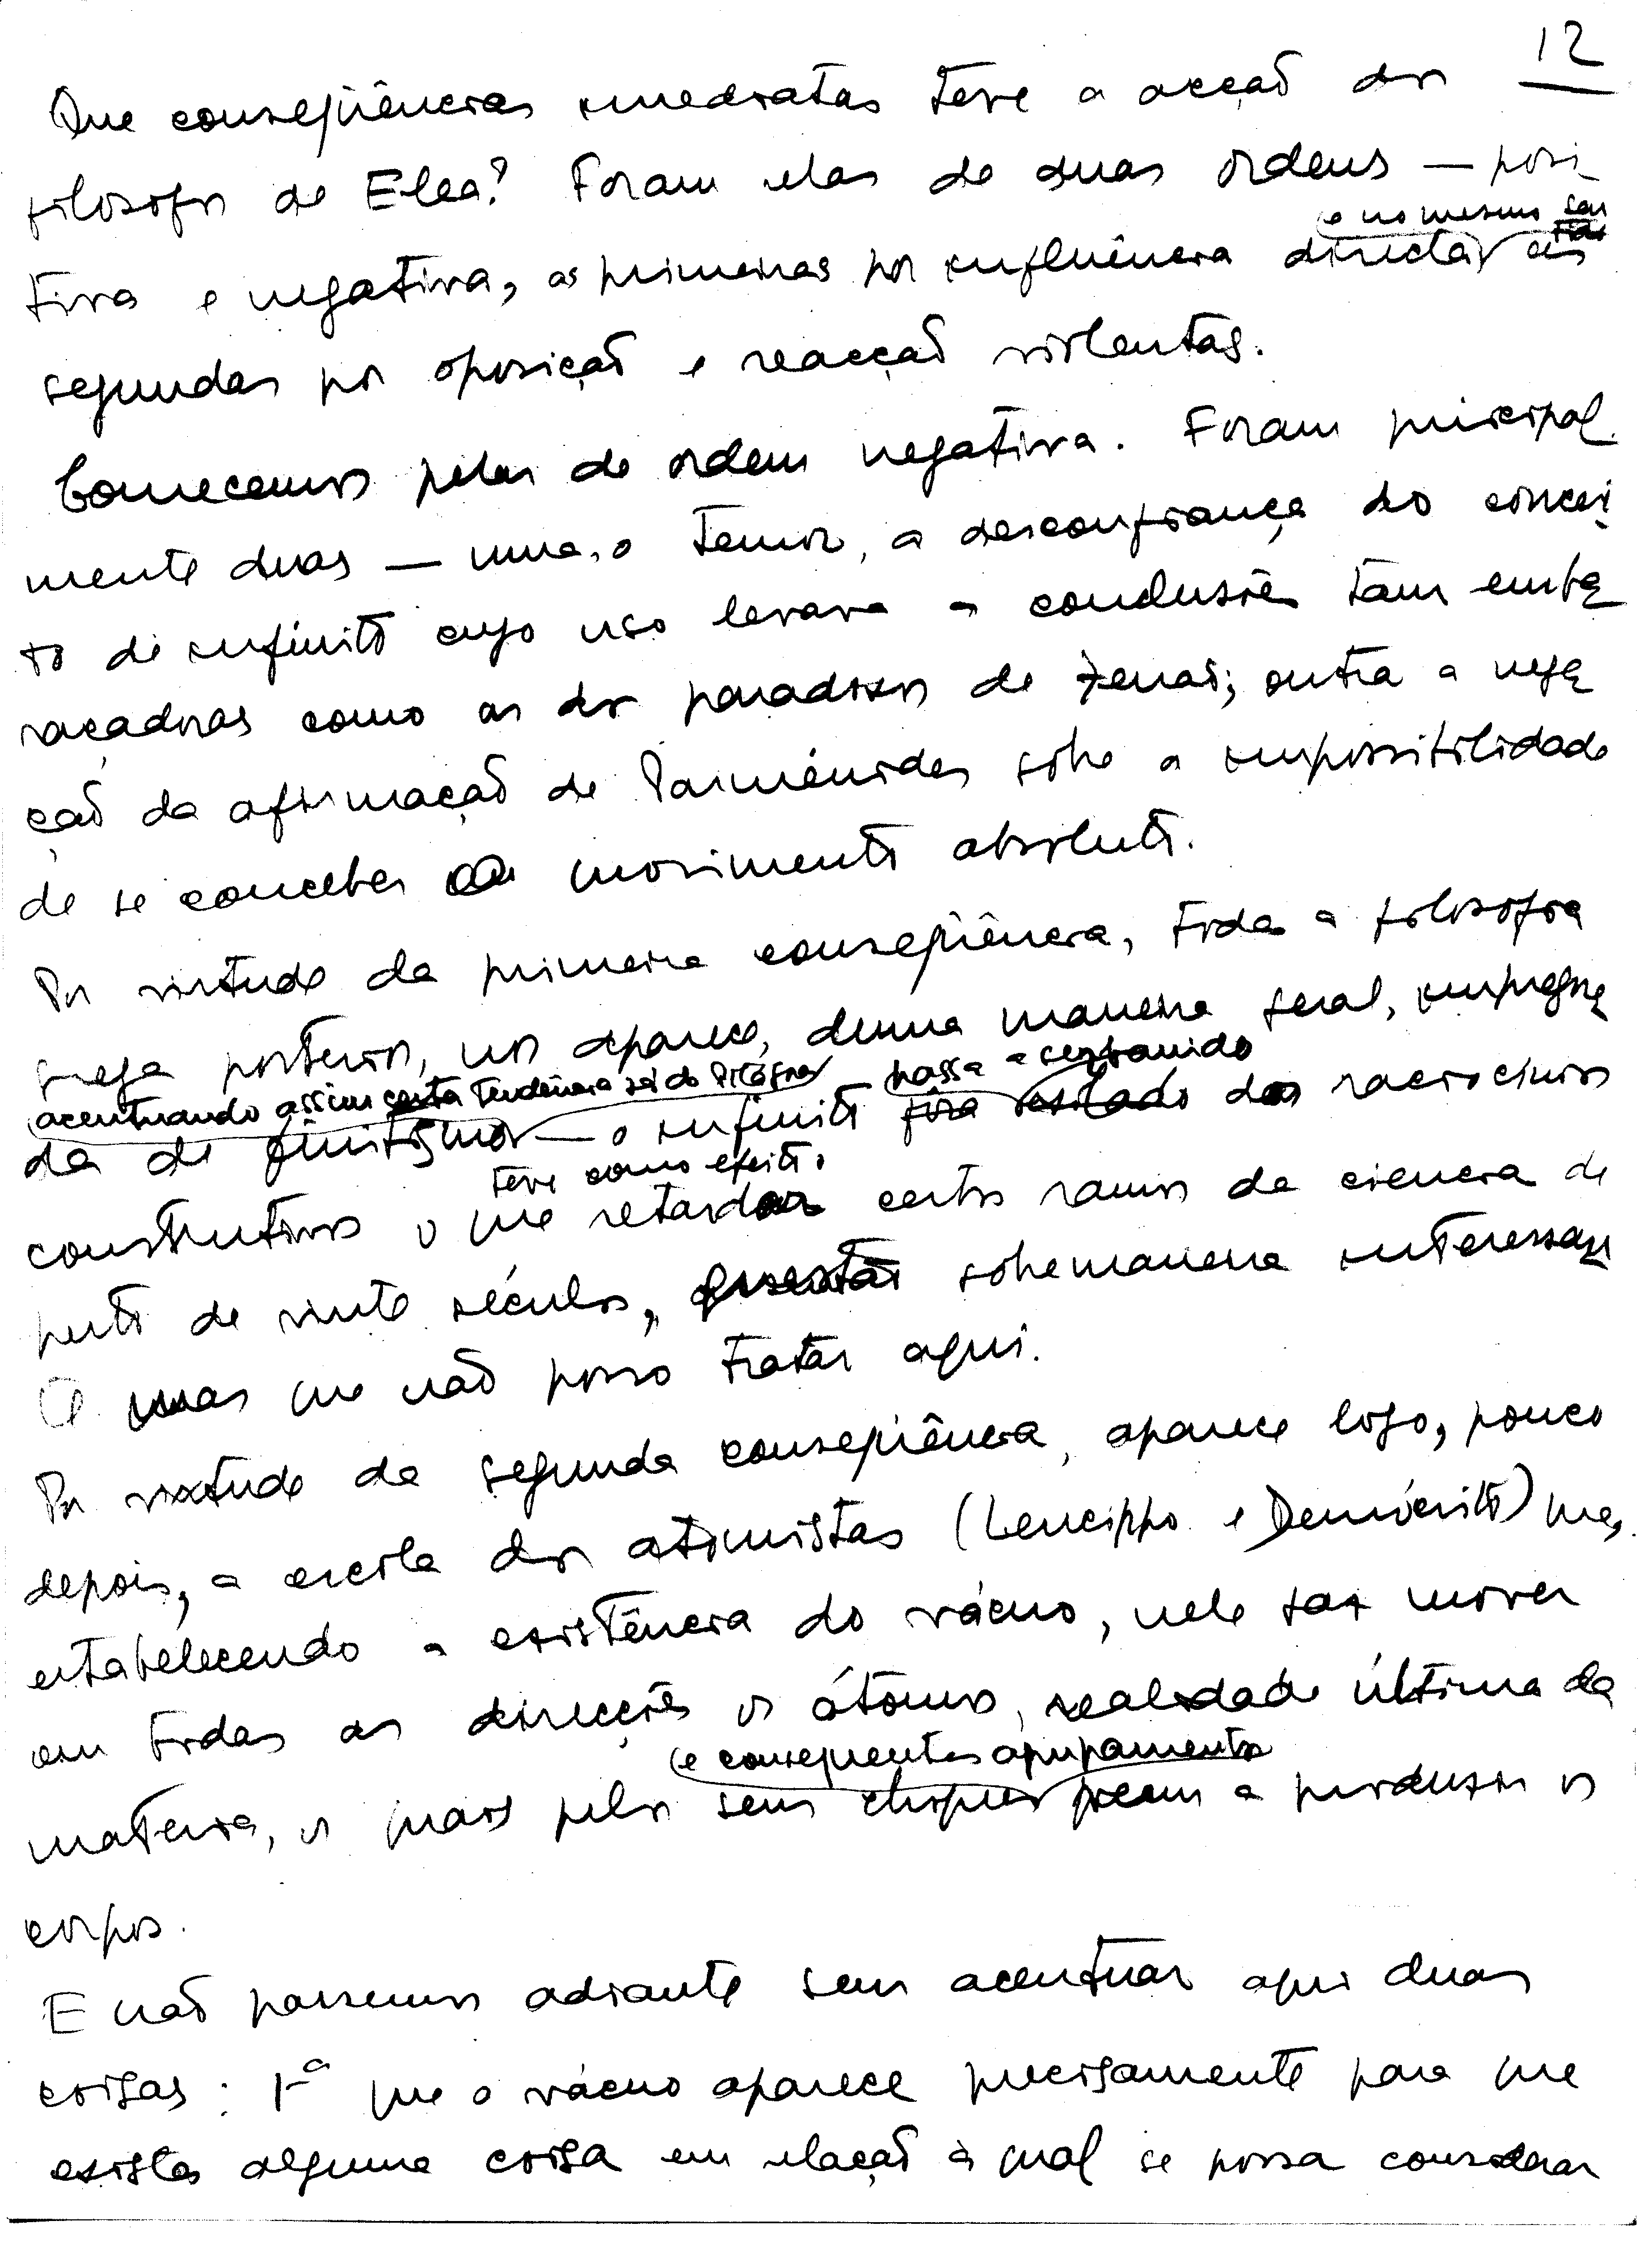 12
Que conseqüências imediatas teve a acção dos
filósofos de Elea? Foram elas de duas ordens — posi
e no mesmo sen
tido
tiva e negativa, as primeiras por influência directa, as
segundas por oposição e reacção violentas.
Comecemos pelas de ordem negativa. Foram principal
mente duas — uma, o temor, a desconfiança do concei
to de infinito cujo uso levava a conclusões tam emba
raçadoras como as dos paradoxos de Zenão; outra a nega
ção da afirmação de Parménides sôbre a impossibilidade
de se conceber o movimento absoluto.
Por virtude da primeira conseqüência, toda a filosofia
grega posterior, nos aparece, duma maneira geral, impregna
acentuando assim certa tendência já de Pitágoras passa a ser banido
da de finitismo — o infinito fôra dos raciocínios
teve como efeito
construtivos o que retardar certos ramos da ciencia de
perto de vinte séculos, questão sobremaneira interessan
te mas que não posso tratar aqui.
Por virtude da segunda conseqüência, aparece logo, pouco
depois, a escola dos atomistas (Leucippo e Demócrito) que,
estabelecendo a existência do vácuo, nele faz mover
em todas as direcções os átomos, realidade última da
e conseqüentes agrupamentos
materia, os quais pelos seus choques vão a produzir os
corpos.
E não passemos adiante sem acentuar aqui duas
coisas: 1ª que o vácuo aparece precisamente para que
exista alguma coisa em relação à qual se possa considerar